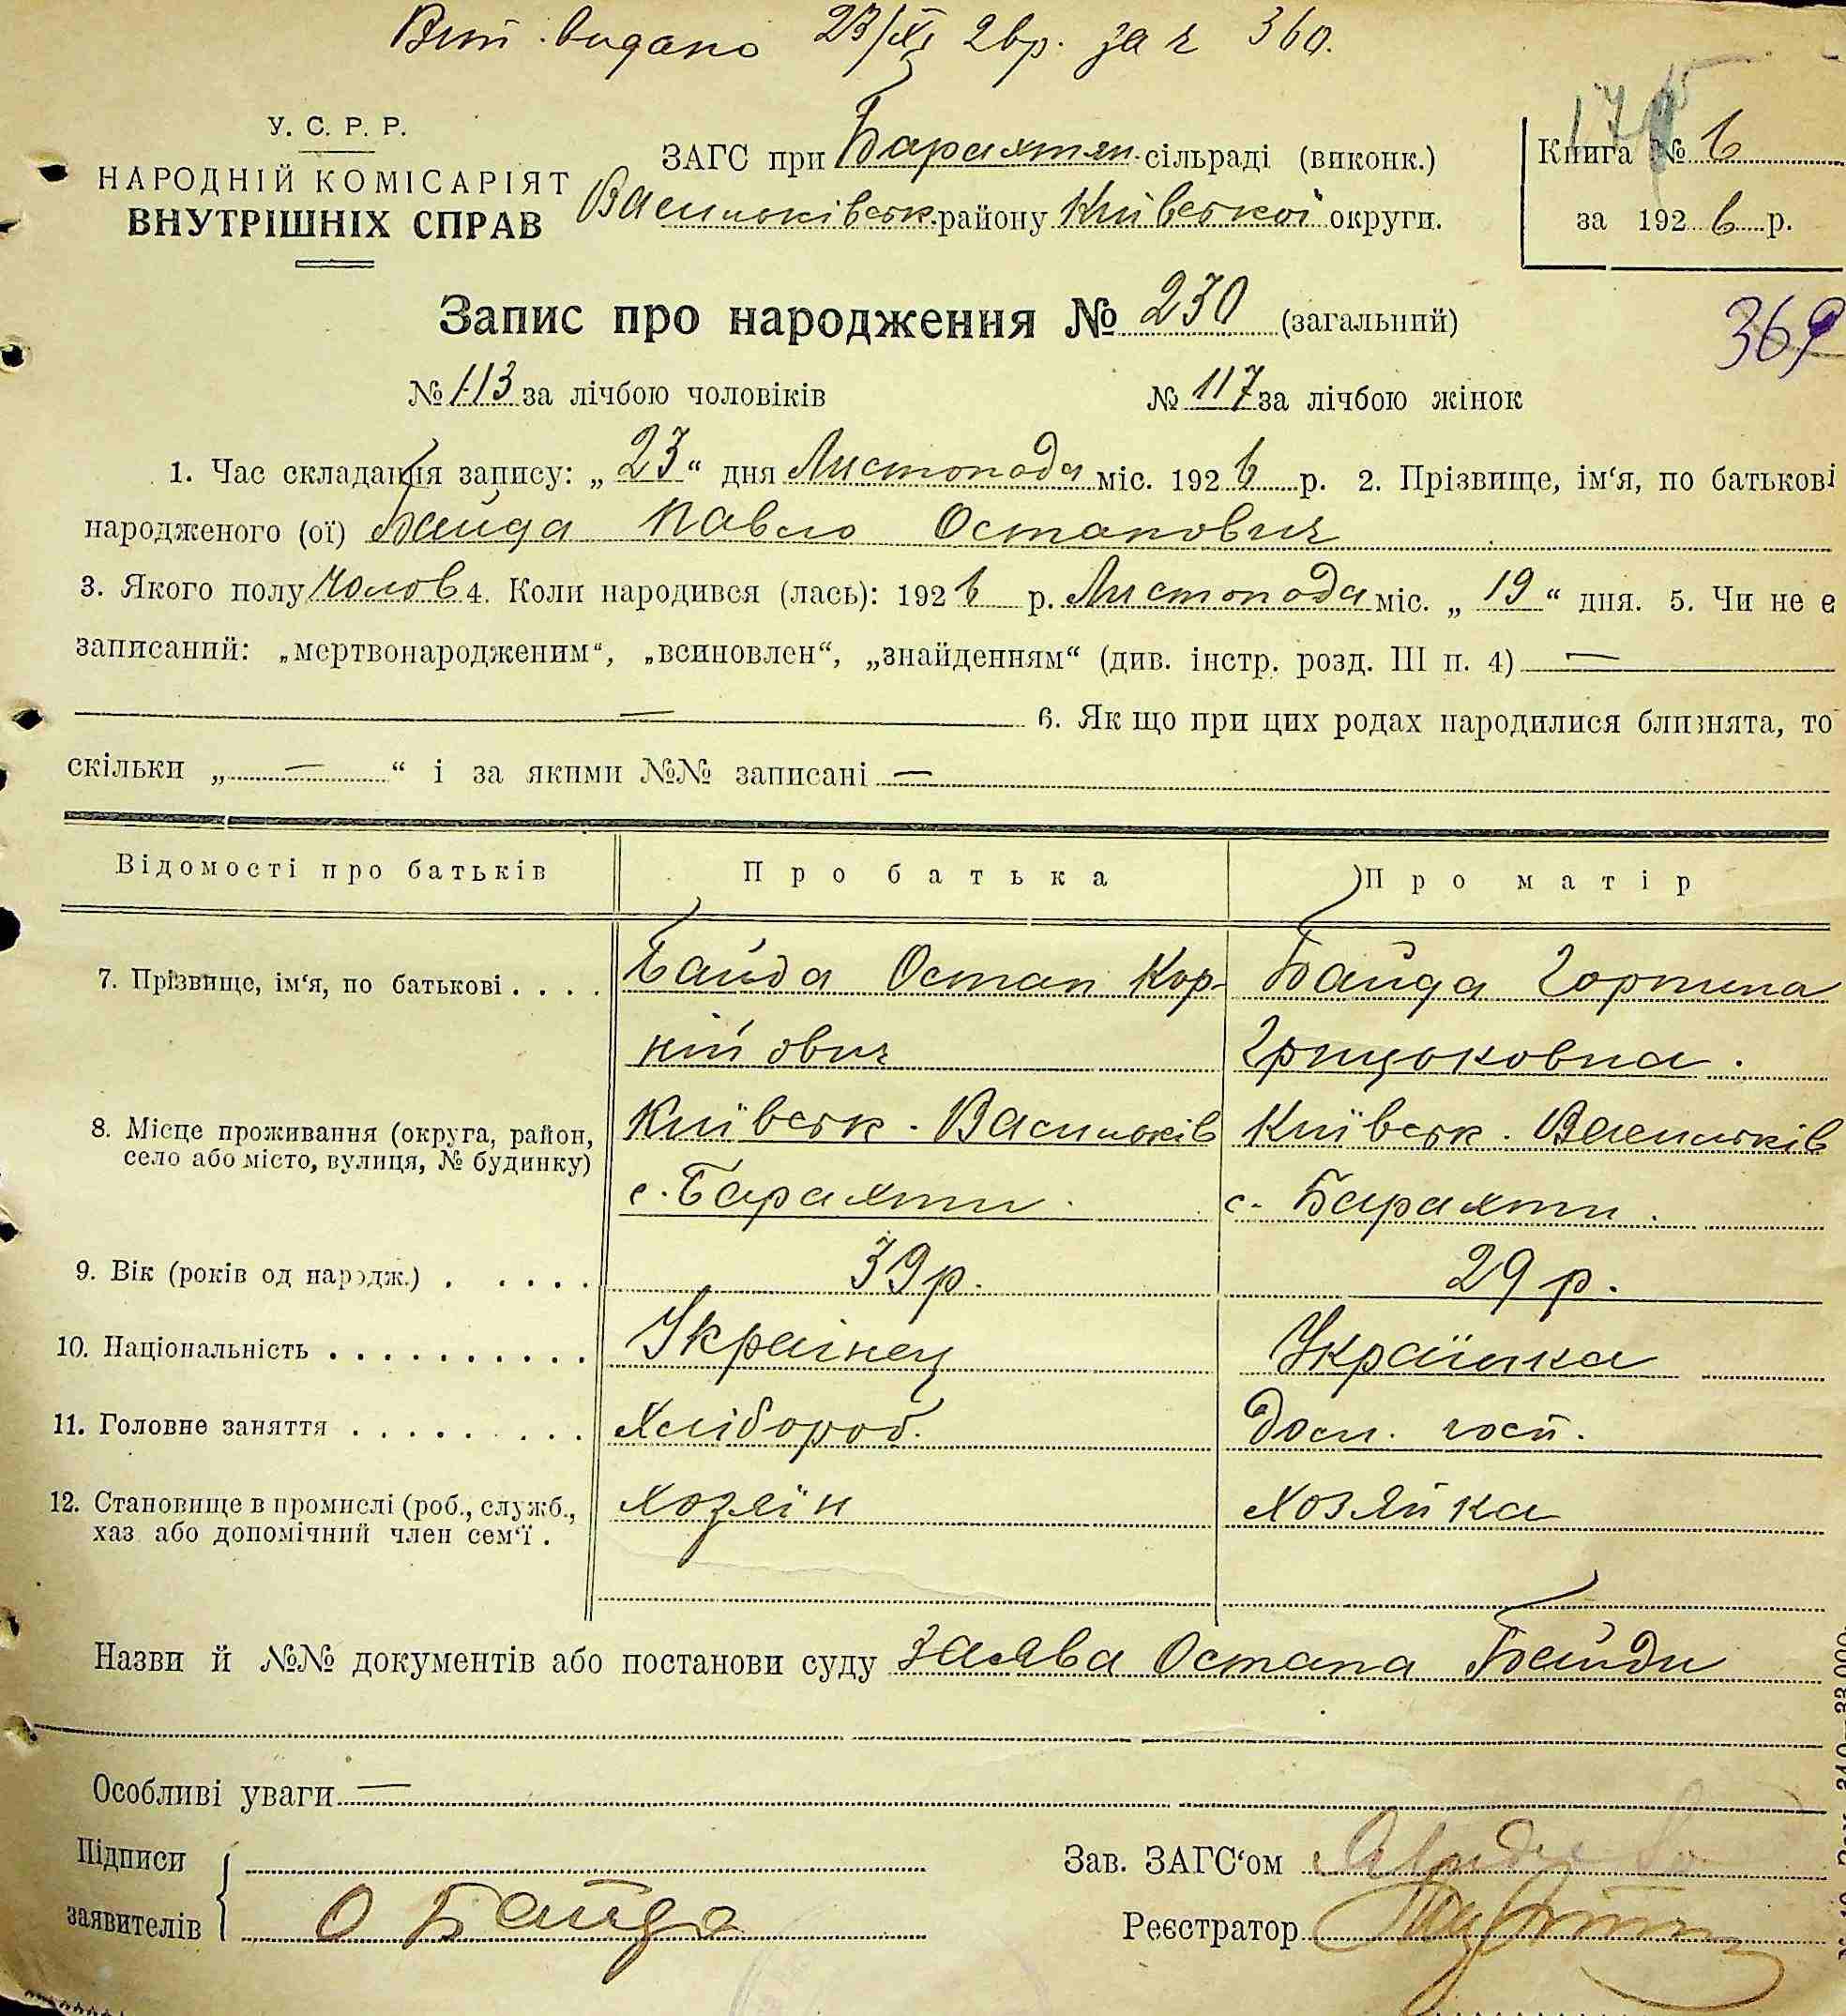 Вит. видано 23/XI 26р. за ч 360.
У. С. Р. Р.
НАРОДНІЙ КОМІСАРІЯТ
ВНУТРІШНІХ СПРАВ
ЗАГС при Барахтян. сільраді (виконк.)
Васильківськ. району Київської округи.
Книга № 6
за 1926 р.
369
Запис про народження № 230 (загальний)
№ 113 за лічбою чоловіків № 117 за лічбою жінок
1. Час складання запису: „23“ дня Листопада міс. 1926 р. 2. Прізвище, ім‘я, по батькові
народженого (ої) Байда Павло Остапович
3. Якого полу Чолов 4. Коли народився (лась): 1926 р. Листопада міс. „19“ дня. 5. Чи не є
записаний: „мертвонародженим“, „всиновлен“, „знайденням“ (див. інстр. розд. III п. 4) —
— 6. Як що при цих родах народилися близнята, то
скільки „ — “ і за якими №№ записані —
Відомості про батьків Про батька Про матір
7. Прізвище, ім‘я, по батькові . . . . Байда Остап Кор- Байда Горпина
нійович Грицьковна.
8. Місце проживання (округа, район, Київськ. Васильків Київськ. Васильків
село або місто, вулиця, № будинку) с. Барахти. с. Барахти.
9. Вік (років од народж.) . . . . . 39р. 29р.
10. Національність . . . . . . . . . . Українец Українка
11. Головне заняття . . . . . . . . . Хлібороб. Дом. госп.
12. Становище в промислі (роб., служб., Хозяїн Хозяйка
хаз або допомічний член сем‘ї .
Назви й №№ документів або постанови суду Заява Остапа Байди
Особливі уваги —
Підписи
заявителів О Байда
Зав. ЗАГС‘ом
Реєстратор